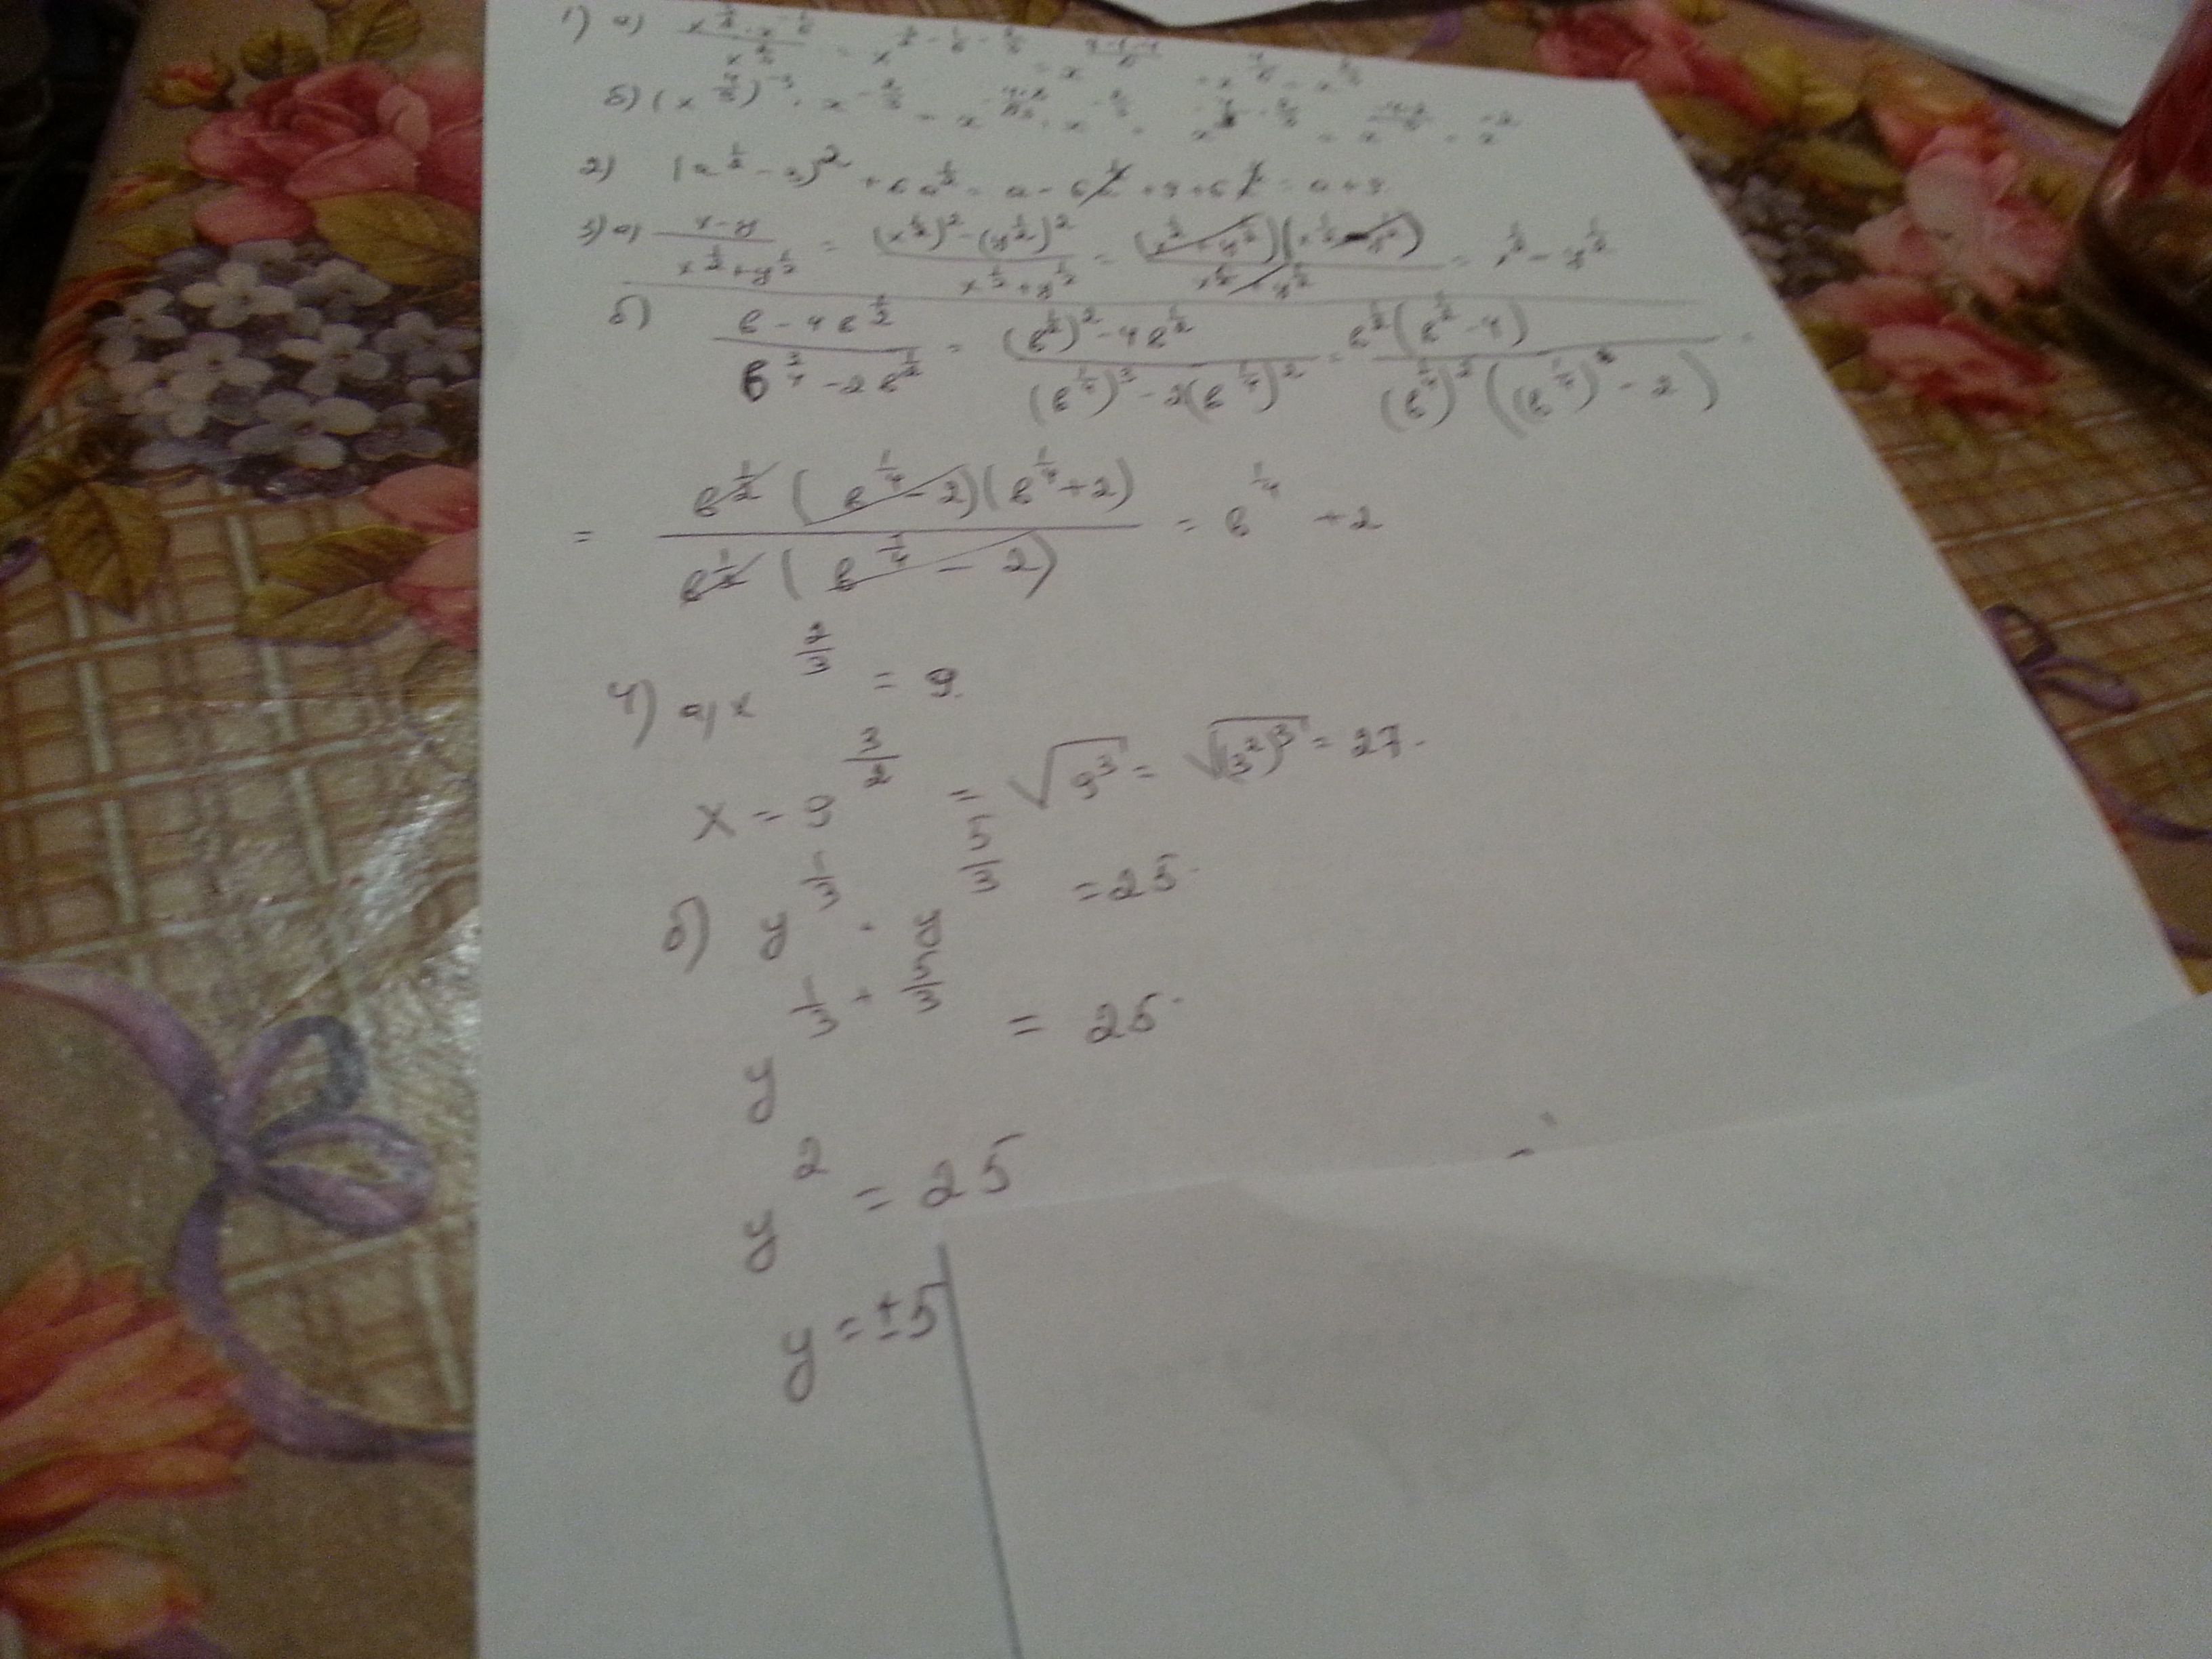 2) (a^{1/2} - 3)^2 + 6a^{1/2} = a - 6 + 9 + 6 = a + 9
3) а) \frac{x-y}{x^{1/2}+y^{1/2}} = \frac{(x^{1/2})^2-(y^{1/2})^2}{x^{1/2}+y^{1/2}} = \frac{(x^{1/2}+y^{1/2})(x^{1/2}-y^{1/2})}{x^{1/2}+y^{1/2}} = x^{1/2} - y^{1/2}
б) \frac{в-4в^{1/2}}{в^{3/4}-2в^{1/2}} = \frac{(в^{1/2})^2-4в^{1/2}}{(в^{1/4})^3-2(в^{1/4})^2} = \frac{в^{1/2}(в^{1/2}-4)}{(в^{1/4})^2((в^{1/4})-2)} =
= \frac{в^{1/2}(в^{1/4}-2)(в^{1/4}+2)}{в^{1/2}(в^{1/4}-2)} = в^{1/4} + 2
4) а) x^{2/3} = 9
x = 9^{3/2} = \sqrt{9^3} = \sqrt{(3^2)^3} = 27.
б) y^{1/3} · y^{5/3} = 25.
y^{1/3 + 5/3} = 25.
y^2 = 25
y = ±5